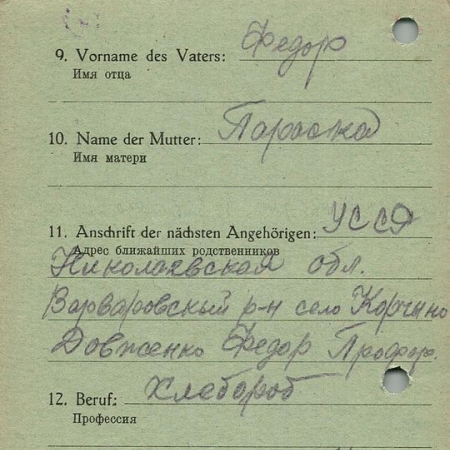 9. Vorname des Vaters: Федор
Имя отца
10. Name der Mutter: Параска
Имя матери
11. Anschrift der nächsten Angehörigen: УССЯ
Адрес ближайших родственников
Николаевская обл.
Варваровский р-н село Корчыно
Довженко Федор Профор.
12. Beruf: Хлебороб
Профессия